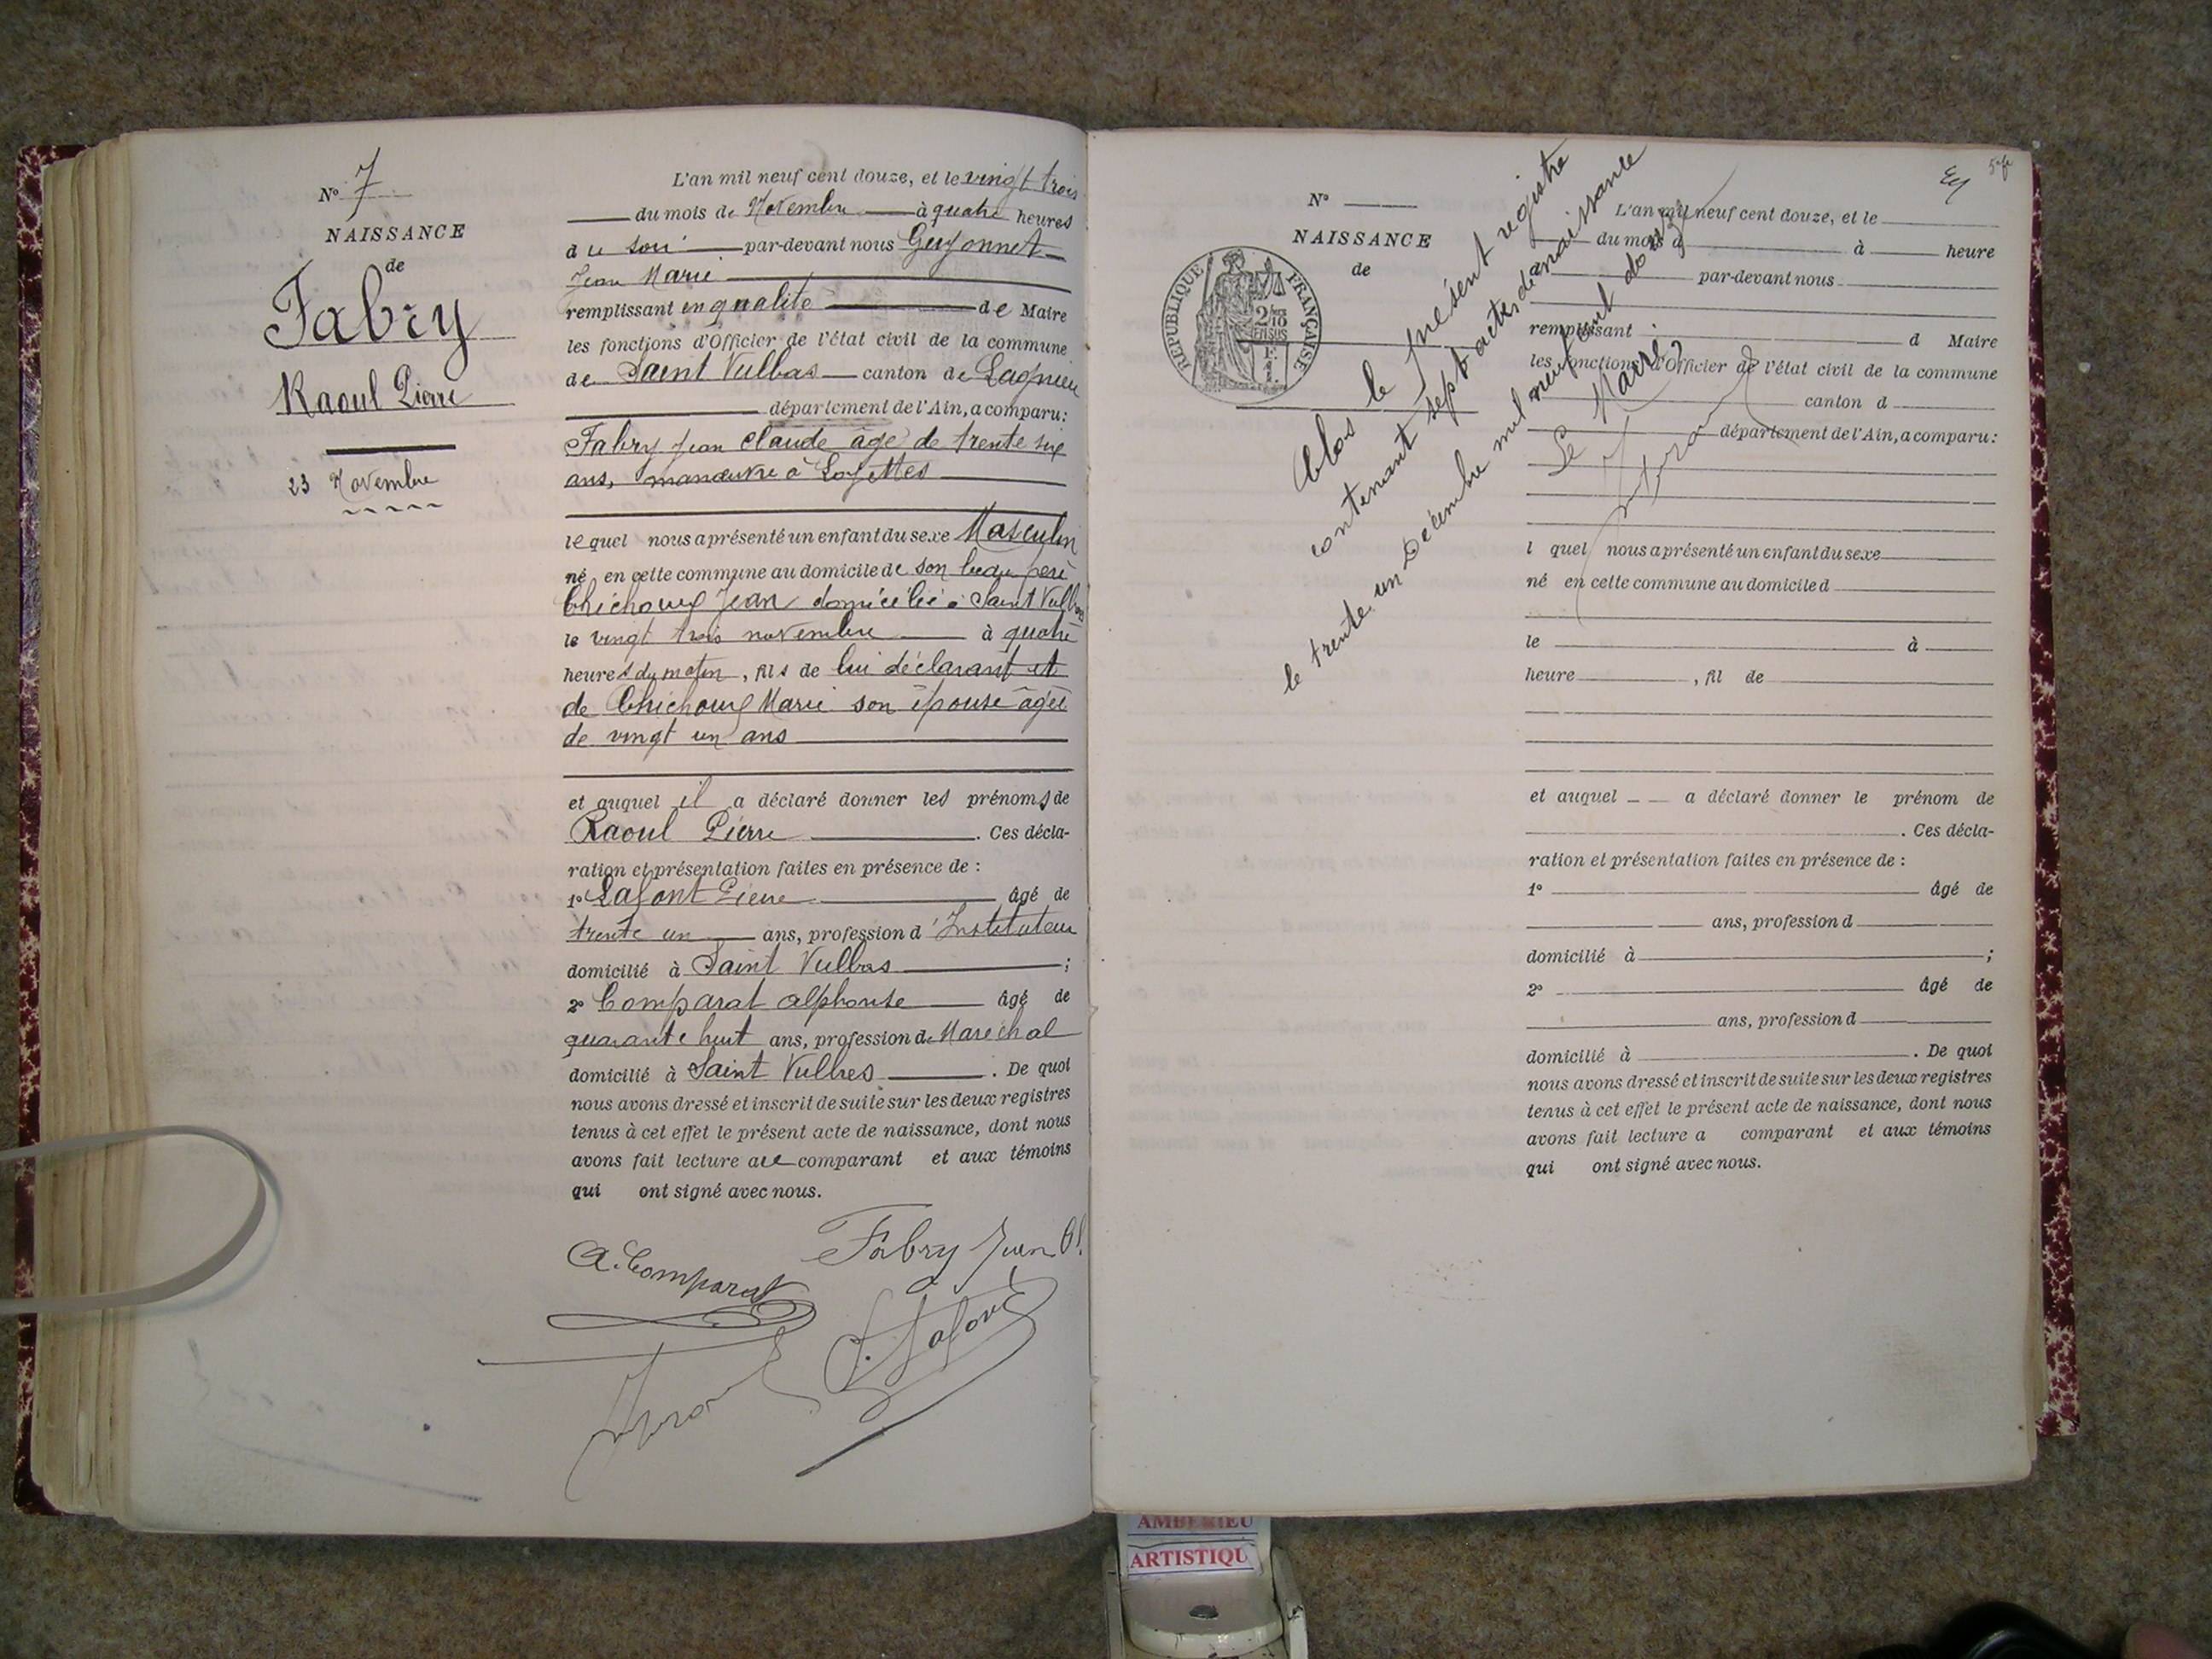 N° 7
NAISSANCE
de
Fabry
Raoul Pierre
23 Novembre
L'an mil neuf cent douze, et le vingt trois
du mois de Novembre à quatre heures
du soir par-devant nous Guyonnet
Jean Marie
remplissant en qualité de Maire
les fonctions d'Officier de l'état civil de la commune
de Saint Vulbas canton de Lagnieu
département de l'Ain, a comparu:
Fabry Jean Claude âgé de trente six
ans, manœuvre à Loyettes
lequel nous a présenté un enfant du sexe Masculin
né en cette commune au domicile de son beau père
Jean domicilié à Saint Vulbas
le vingt trois novembre à quatre
heures du matin, fils de lui déclarant et
de Marie son épouse âgée
de vingt un ans
et auquel il a déclaré donner les prénoms de
Raoul Pierre. Ces décla-
ration et présentation faites en présence de :
1° Lafont Pierre âgé de
trente un ans, profession d'Instituteur
domicilié à Saint Vulbas ;
2° Comparat alphonse âgé de
quarante huit ans, profession de Maréchal
domicilié à Saint Vulbas. De quoi
nous avons dressé et inscrit de suite sur les deux registres
tenus à cet effet le présent acte de naissance, dont nous
avons fait lecture au comparant et aux témoins
qui ont signé avec nous.
Fabry Jean Cl
A. Comparat
P. Lafont
N°
NAISSANCE
de
REPUBLIQUE FRANÇAISE
Clos le présent registre
contenant sept actes de naissance
le trente un Décembre mil neuf cent douze
Le Maire
L'an mil neuf cent douze, et le
du mois d à heure
par-devant nous
remplissant d Maire
les fonctions d'Officier de l'état civil de la commune
canton d
département de l'Ain, a comparu:
l quel nous a présenté un enfant du sexe
né en cette commune au domicile d
le à
heure , fil de
et auquel a déclaré donner le prénom de
. Ces décla-
ration et présentation faites en présence de :
1° âgé de
ans, profession d
domicilié à ;
2° âgé de
ans, profession d
domicilié à . De quoi
nous avons dressé et inscrit de suite sur les deux registres
tenus à cet effet le présent acte de naissance, dont nous
avons fait lecture a comparant et aux témoins
qui ont signé avec nous.
ARTISTIQU